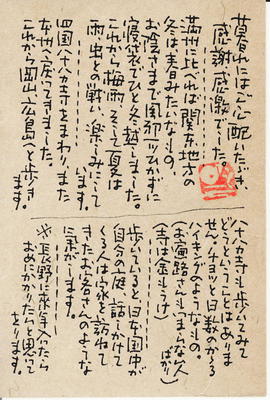 暮れにはご心配いただき
感謝感激でした。
満州に比べれば関東地方の
冬は春みたいなもの。
お陰さまで風邪一ツひかずに
寝袋でひと冬越しました。
これから梅雨そして夏は
雨虫との戦い、楽しみにして
います。
四国八十八カ寺をまわり、また
本州へ戻ってきました。
これから岡山、広島へと歩き
ます。
八十八カ寺も歩いてみて
どうということはありま
せん。チョッと日数のかかる
ハイキングのようなもの。
(お遍路さんもつまらない人
ばかり)
(寺は金もうけ)
歩いていると日本国中が
自分の家庭、話しかけて
くる人は家を訪ねて
きたお客さんのような
気がします。
※長野に来年入ったら
おめにかかりたいと思って
おります。